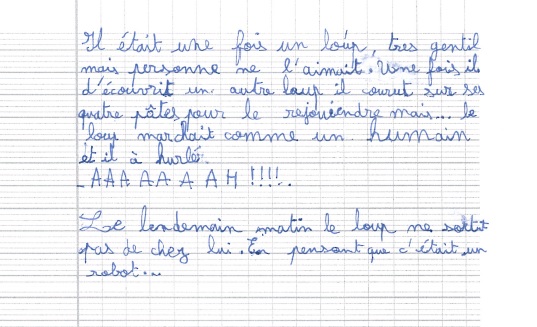 Il était une fois un loup, tres gentil
mais personne ne l'aimait. Une fois il
d'écouvrit un autre loup il courut sur ses
quatre pâtes pour le rejouiendre mais... le
loup marchait comme un humain
ét il à hurlé.
_AAA AA A A H !!!!.
Le lendemain matin le loup ne sortit
pas de chez lui. En pensant que c'était un
robot...